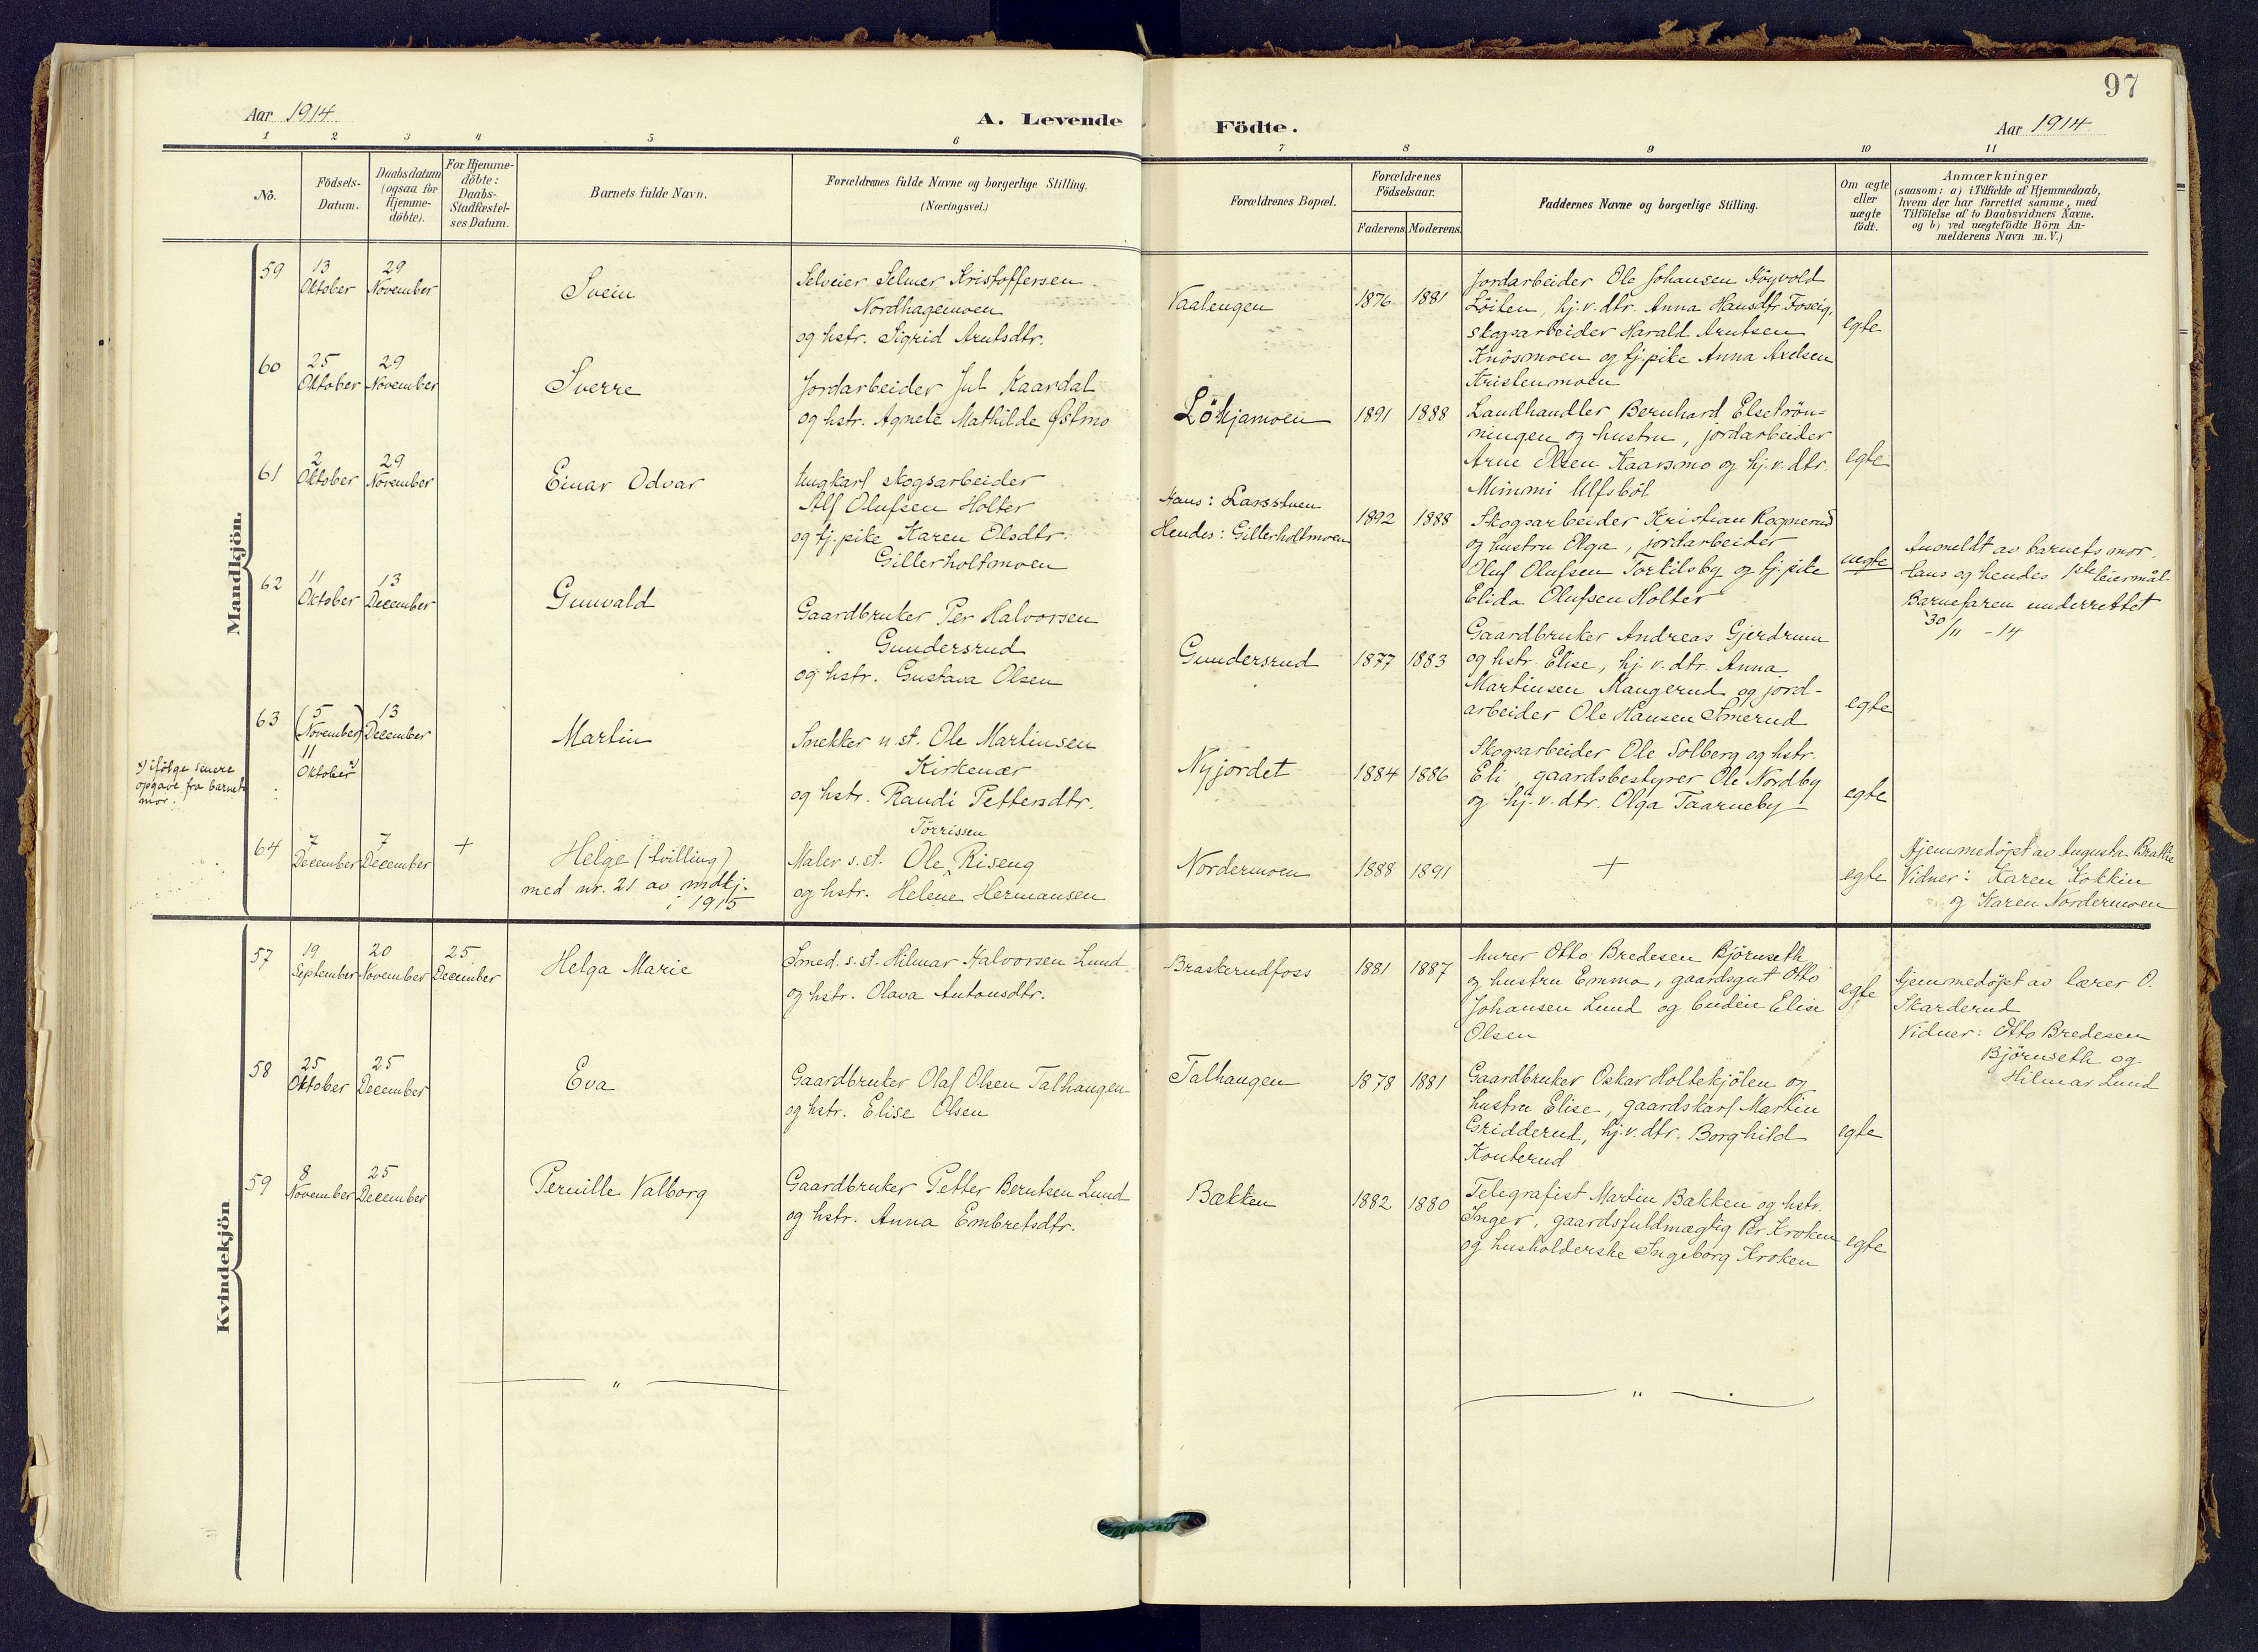 97
Aar 1914
A. Levende
Födte.
Aar 1914
1 2 3 4 5 6
7 8 9 10 11
No.
Födsels-
Datum.
Daabsdatum
(ogsaa for
Hjemme-
döbte).
For Hjemme-
döbte:
Daabs-
Stadfæstel-
ses Datum.
Barnets fulde Navn.
Forældrenes fulde Navne og borgerlige Stilling.
(Næringsvei.)
Forældrenes Bopæl.
Forældrenes
Födselsaar.
Faderens. Moderens.
Faddernes Navne og borgerlige Stilling.
Om ægte
eller
uægte
födt.
Anmærkninger
(saasom: a) i Tilfælde af Hjemmedaab,
hvem der har forrettet samme, med
Tilföielse af to Daabsvidners Navne.
og b) ved uægtefödte Börn An-
melderens Navn m. V.)
Mandkjön.
59
13
Oktober
29
November
Svein
Selveier Selmer Kristoffersen
Nordhagemoen
og hstr. Sigrid Arntsdtr.
Vaalengen
1876 1881
Jordarbeider Ole Johansen Höyvold
Löiten, hj. v. dtr. Anna Hansdtr. Foseig,
skogsarbeider Harald Arntsen
Knösmoen og tj.pike Anna Axelsen
Kristenmoen
egte
60
25
Oktober
29
November
Sverre
Jordarbeider Jul Kaardal
og hstr. Agnete Mathilde Østmo
Löhjamoen
1891 1888
Landhandler Bernhard Elsetrön-
ningen og hustru, jordarbeider
Arne Olsen Kaarsmo og hj. v. dtr.
Mimmi Ulfsböl
egte
61
2
Oktober
29
November
Einar Odvar
Ungkarl skogsarbeider
Alf Olufsen Holter
og tj.pike Karen Olsdtr.
Gillerholtmoen
Hans: Larsstuen
Hendes: Gillerholtmoen
1892 1888
Skogsarbeider Kristian Rognerud
og hustru Olga, jordarbeider
Oluf Olufsen Torkilsby og tj.pike
Elida Olufsen Holter
uegte
Anmeldt av barnets mor.
Hans og hendes 1ste leiermål
Barnefaren underrettet
30/11 - 14
62
11
Oktober
13
December
Gunvald
Gaardbruker Per Halvorsen
Gundersrud
og hstr. Gustava Olsen
Gundersrud
1877 1883
Gaardbruker Andreas Gjerdrum
og hstr. Elise, hj. v. dtr. Anna
Martinsen Mangerud og jord-
arbeider Ole Hansen Smerud
egte
63
(5
November)
11
Oktober x)
13
December
x) ifölge senere
opgave fra barnets
mor.
Martin
Snekker u. st. Ole Martinsen
Kirkenær
og hstr. Randi Pettersdtr.
Nyjordet
1884 1886
Skogsarbeider Ole Solberg og hstr.
Eli, gaardsbestyrer Ole Nordby
og hj. v. dtr. Olga Taarneby
egte
64
7
December
7
December
+
Helge (tvilling)
med nr. 21 av mdkj.
i 1915
Törrissen
Maler s. st. Ole Riseng
og hstr. Helene Hermansen
Nordermoen
1888 1891
+
egte
Hjemmedöpt av Augusta Brattli
Vidner: Karen Kokkin
og Karen Nordermoen
Kvindekjön
57
19
September
20
November
25
December
Helga Marie
Smed. s. st. Hilmar Halvorsen Lund
og hstr. Olava Antonsdtr.
Braskerudfoss
1881 1887
Murer Otto Bredesen Björnseth
og hustru Emma, gaardsgut Otto
Johansen Lund og budeie Elise
Olsen
egte
Hjemmedöpt av lærer O.
Skarderud
Vidner: Otto Bredesen
Björnseth og
Hilmar Lund
58
25
Oktober
25
December
Eva
Gaardbruker Olaf Olsen Talhaugen
og hstr. Elise Olsen
Talhaugen
1878 1881
Gaardbruker Oskar Holtekjölen og
hustru Elise, gaardskarl Martin
Gridderud, hj. v. dtr. Borghild
Konterud
egte
59
8
November
25
December
Pernille Valborg
Gaardbruker Petter Berntsen Lund
og hstr. Anna Embretsdtr.
Bækken
1882 1880
Telegrafist Martin Bakken og hstr.
Inger, gaardsfuldmægtig Per Kroken
og husholderske Ingeborg Kroken
egte
"
"